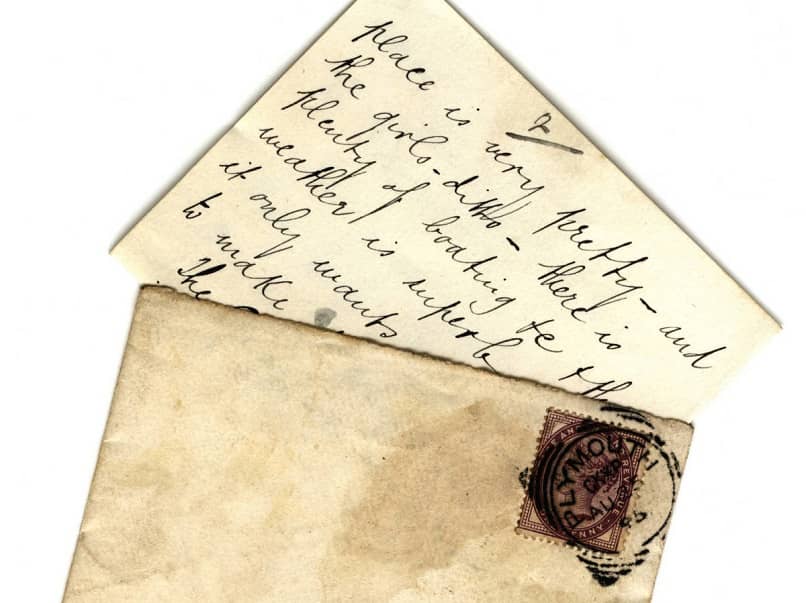 2
place is very pretty – and
the girls – ditto – there is
plenty of boating &c + the
weather is superb
it only wants
to make
The
PLYMOUTH
AU